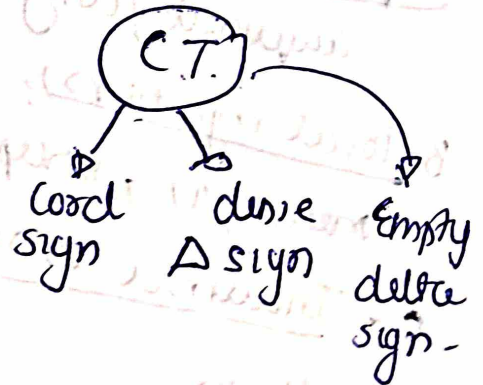 CT.
Cord
sign
dense
Δ sign
Empty
delta
sign-